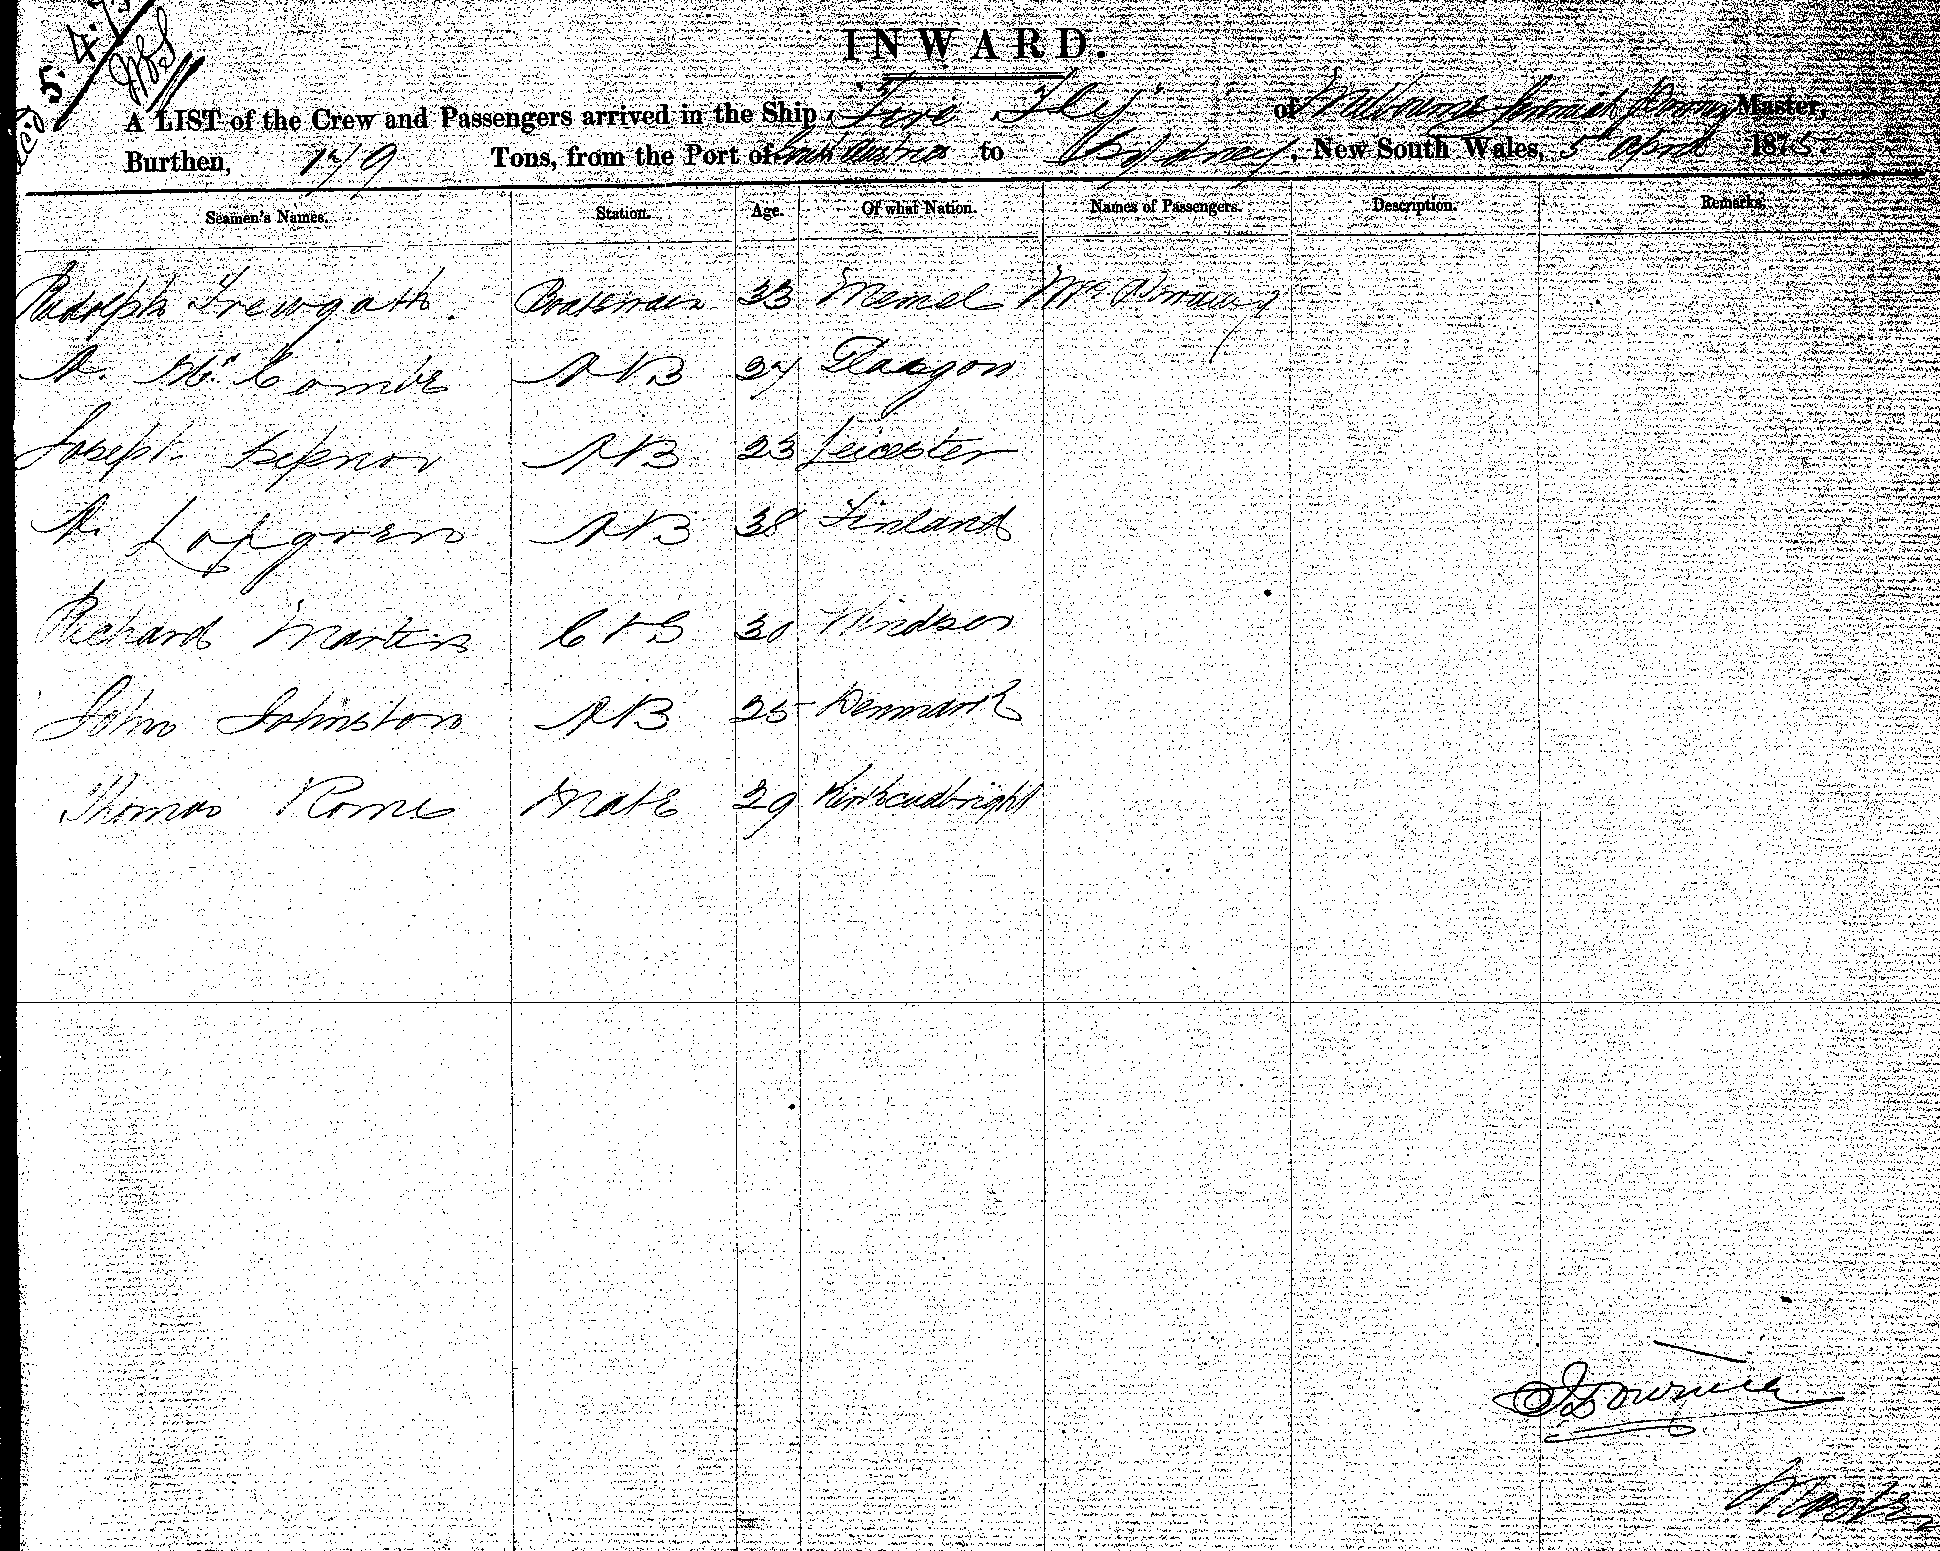 Rec'd 5. 4. 75
INWARD.
A LIST of the Crew and Passengers arrived in the Ship "Fire Fly" of Melbourne Jeremiah Master,
Burthen, 179 Tons, from the Port of to Sydney, New South Wales, 5th April 1875
Seamen's Names. Station. Age. Of what Nation. Names of Passengers. Description. Remarks.
Rudolph Boatswain 33 Memel Mrs
A. McCombe AB 24 Glasgow
Joseph AB 23 Leicester
A. Lofgren AB 38 Finland
Richard Martin C & S 30 Windsor
John Johnston AB 25 Denmark
Thomas Rome Mate 29 Kirkcudbright
Master